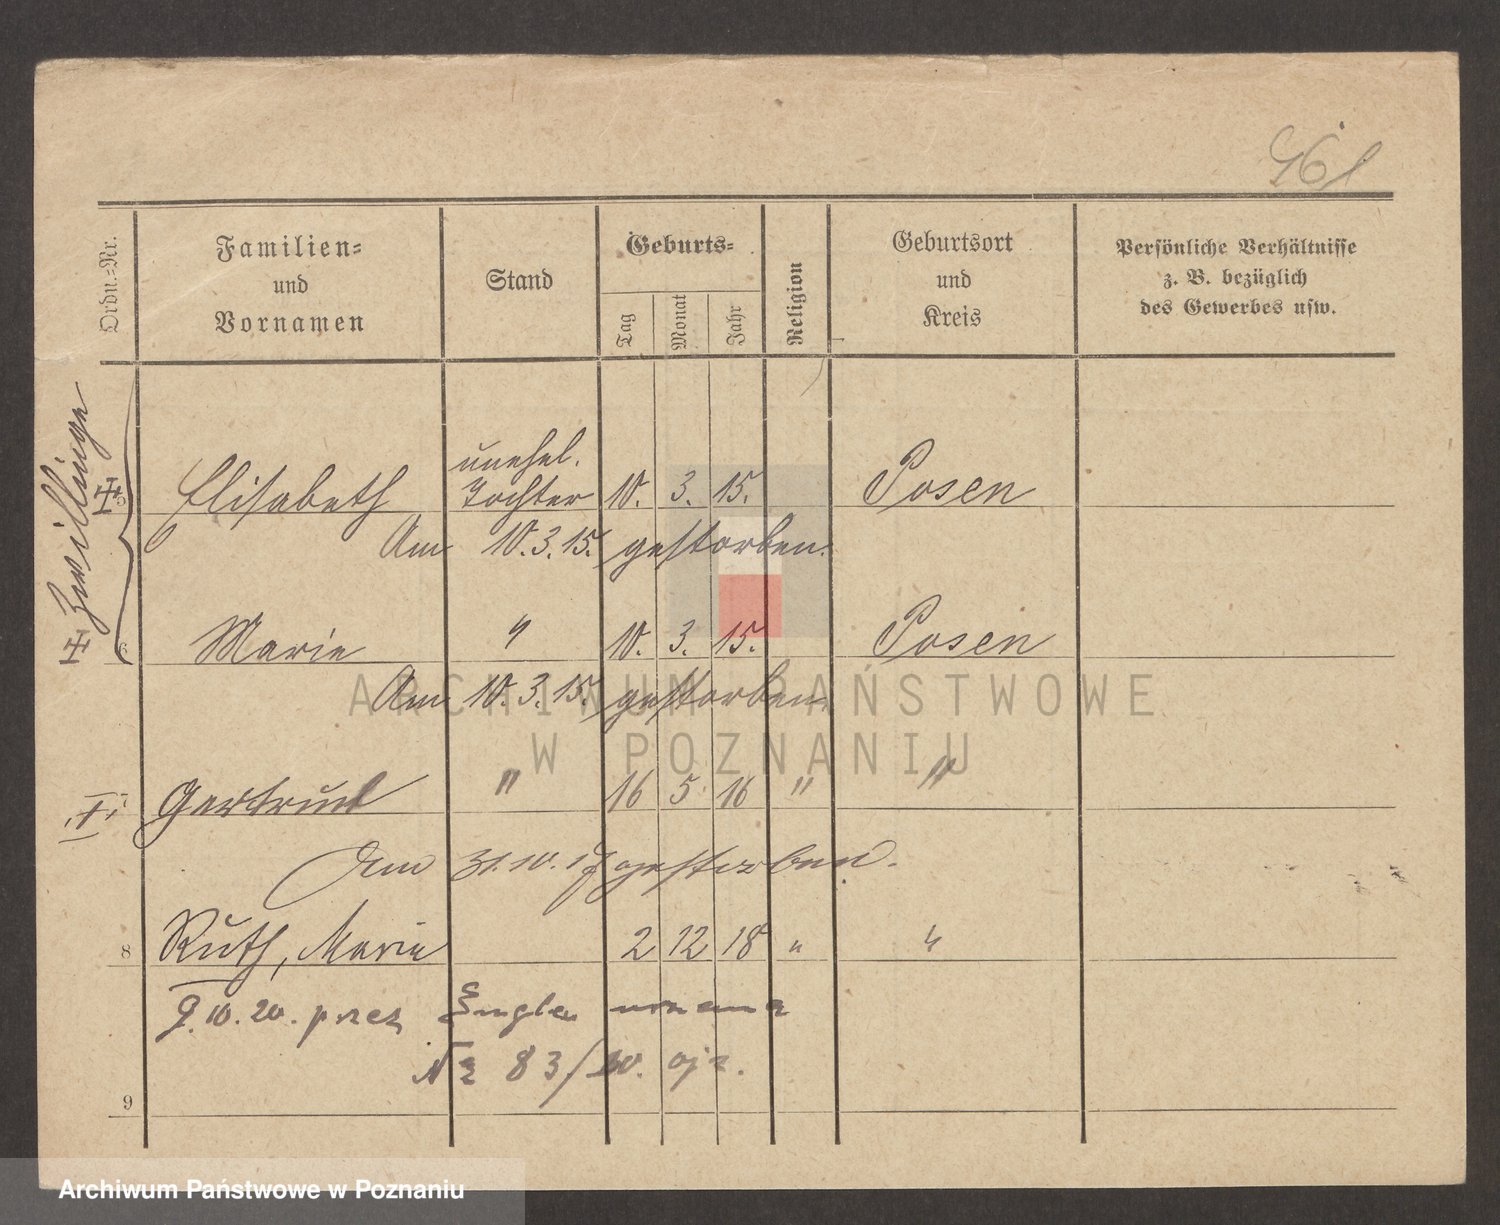 461
Ordn.-Nr.
Familien-
und
Vornamen
Stand
Geburts-
Tag
Monat
Jahr
Religion
Geburtsort
und
Kreis
Persönliche Verhältnisse
z. B. bezüglich
des Gewerbes usw.
Zwillinge
unehel.
5 Elisabeth Tochter 10. 3. 15. Posen
Am 10.3.15. gestorben.
6 Marie " 10. 3. 15. Posen
Am 10.3.15. gestorben.
7 Gertrud " 16 5 16 " "
Am 31.10.17 gestorben.
8 Ruth, Marie 2 12 18 " "
9.10.20. przez Englera uznana
№ 83/20. ojc.
9
ARCHIWUM PAŃSTWOWE
W POZNANIU
Archiwum Państwowe w Poznaniu